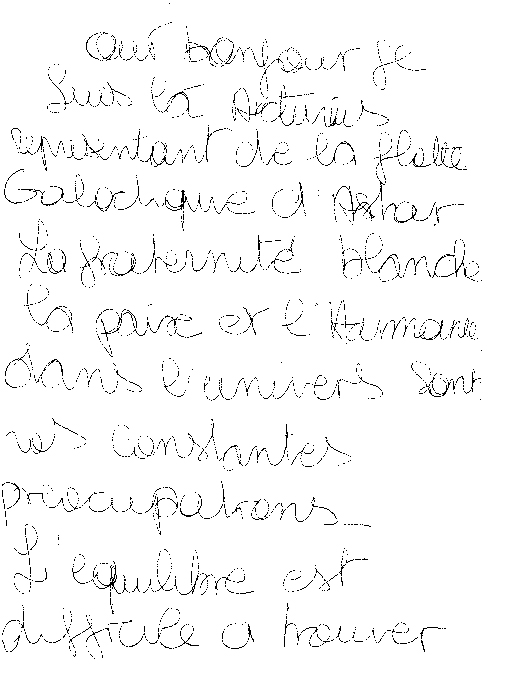 oui bonjour je
suis là Arcturius
représentant de la flotte
Galactique d'Ashtar
La fraternité blanche
la paix et l'Humanité
dans l'univers sont
nos constantes
préocupations_
L'équilibre est
difficile a trouver